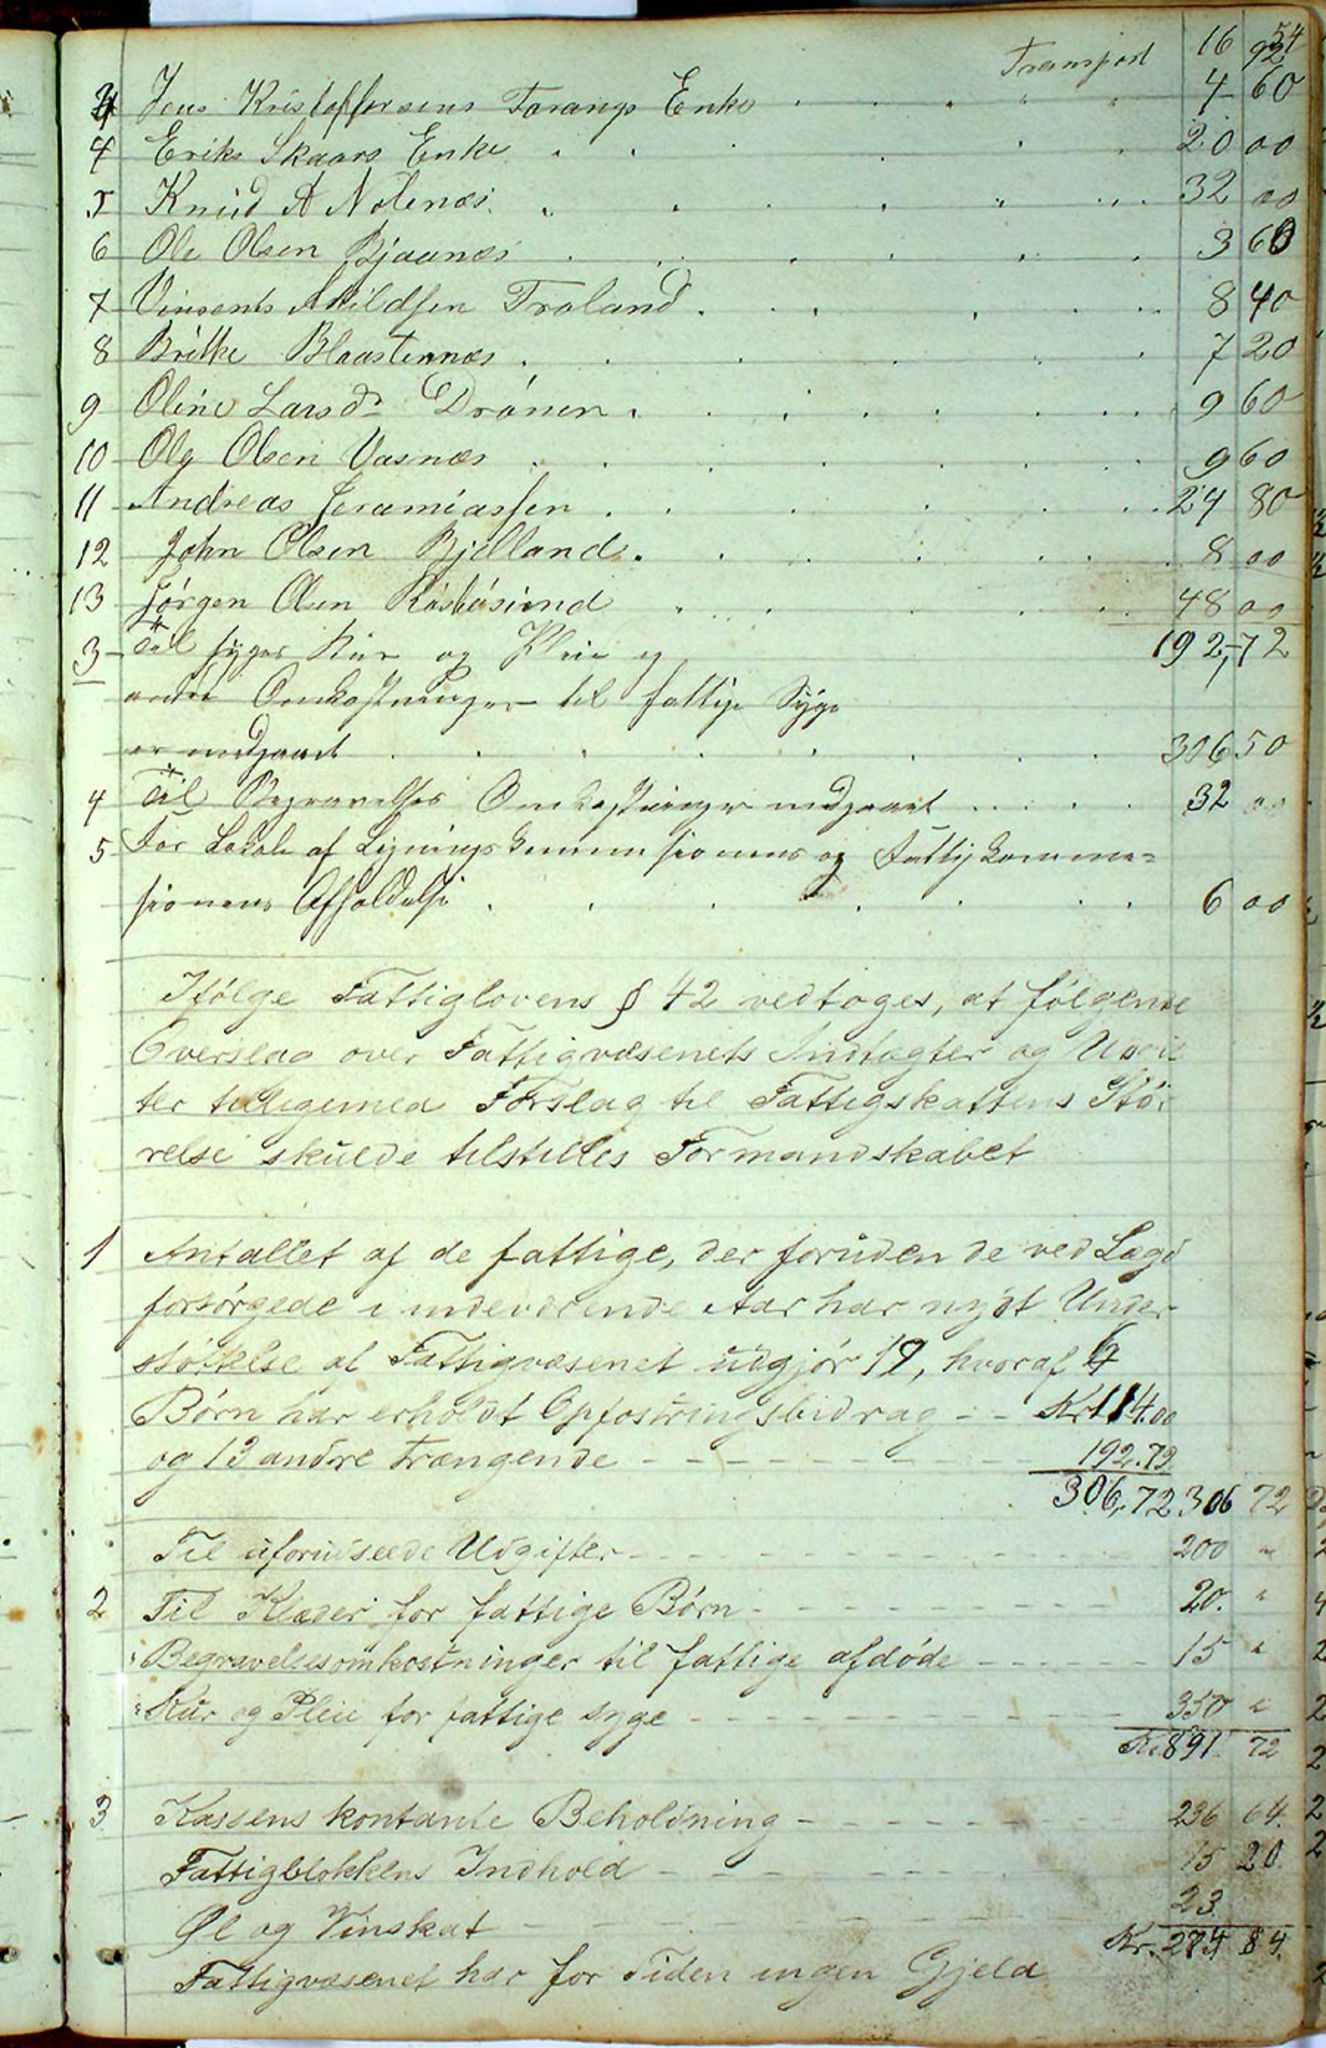 54
Transport 16 92
3 Jens Kristoffersens Tarangs Enke 4 60
4 Eriks Skaars Enke 20 00
5 Knud A Nolenæs 32 00
6 Ole Olsen Bjaanæs 3 60
7 Vinsents Askildsen Troland 8 40
8 Brithe Blaastennæs 7 20
9 Oline Larsdr Drönen 9 60
10 Ole Olsen Vasnæs 9 60
11 Andreas Jeramiassen 24 80
12 John Olsen Bjelland 8 00
13 Jörgen Olsen 48 00
3 Til syges Kur og Pleie og 192,72
andre Omkostninger til fattige Syge
er medgaaet 306 50
4 Til Begravelses Omkostninger medgaaet 32 00
5 For Lokale af Ligningskommisionens og Fattigkommi=
sionens Afholdelse 6 00
Ifölge Fattiglovens § 42 vedtoges, at fölgende
Overslag over Fattigvæsenets Indtægter og Udgif
ter tilligemed Forslag til Fattigskattens Stör
relse skulde tilstilles Formandskabet
1 Antallet af de fattige, der foruden de ved Lægd
forsörgede i indeværende Aar har nydt Under
stöttelse af Fattigvæsenet udgjör 17, hvoraf 4
Börn har erholdt Opfostringsbidrag - - Kr 114.00
og 13 andre Trængende - - - 192.72
306,72 306 72
Til uforudseede Udgifter - - - 200 "
2 Til Klæder for fattige Börn - - - 20. "
" Begravelsesomkostninger til fattige afdöde - - - 15 "
" Kur og Pleie for fattige syge - - - 350 "
Kr. 891. 72
3 Kassens kontante Beholdning - - - 236 64.
Fattigblokkens Indhold - - - 15 20.
Øl og Vinskat - - - 23.
Kr. 274 84.
Fattigvæsenet har for Tiden ingen Gjeld